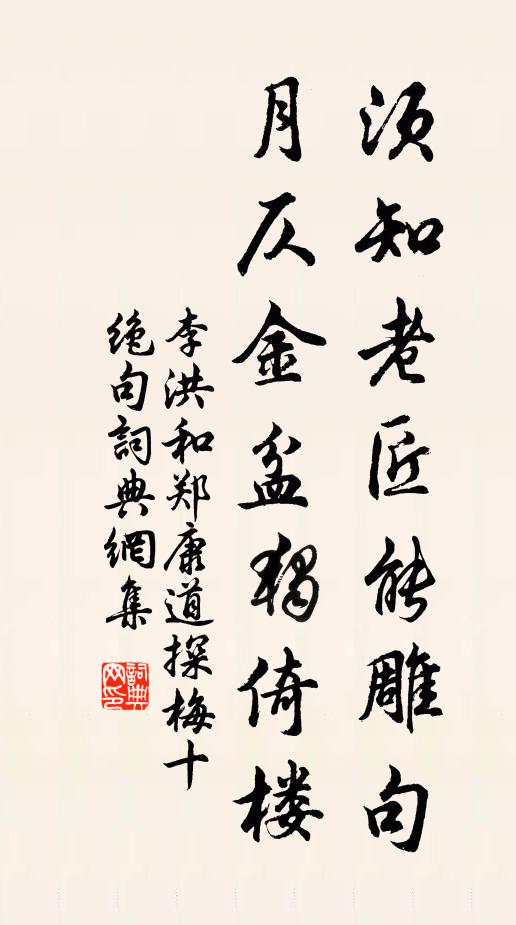 须知老匠能雕句
月仄金盆独倚楼
李洪和郑康道探梅十
绝句詞典網集
詞典网印